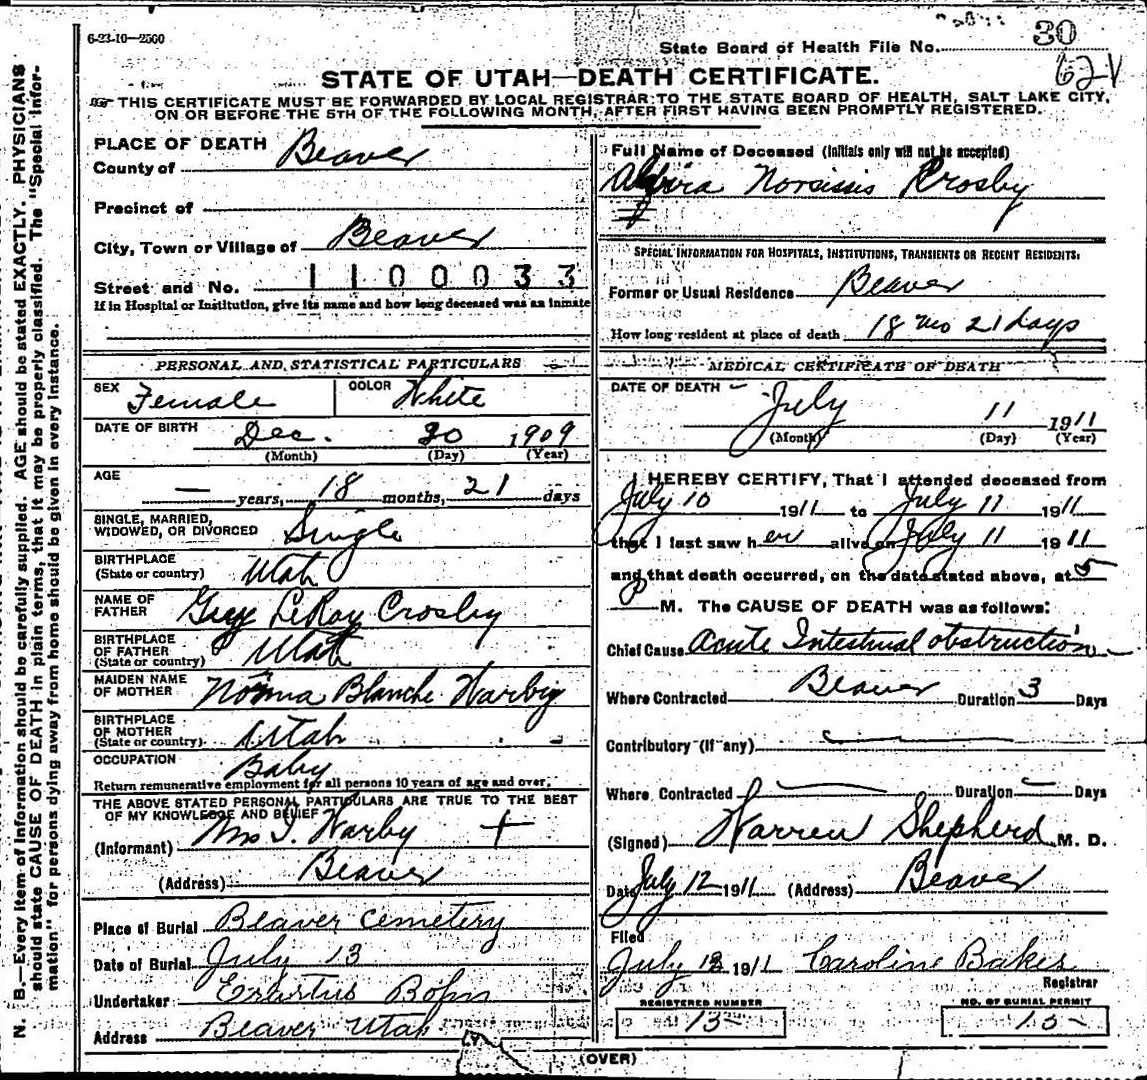 6-23-10—2500
State Board of Health File No. 30
62V
STATE OF UTAH—DEATH CERTIFICATE.
THIS CERTIFICATE MUST BE FORWARDED BY LOCAL REGISTRAR TO THE STATE BOARD OF HEALTH, SALT LAKE CITY,
ON OR BEFORE THE 5TH OF THE FOLLOWING MONTH, AFTER FIRST HAVING BEEN PROMPTLY REGISTERED.
PLACE OF DEATH
County of Beaver
Precinct of
City, Town or Village of Beaver
Street and No. 1 1 0 0 0 3 3
If in Hospital or Institution, give its name and how long deceased was an inmate
PERSONAL AND STATISTICAL PARTICULARS
SEX Female COLOR White
DATE OF BIRTH Dec. 20 1909
(Month) (Day) (Year)
AGE — years, 18 months, 21 days
SINGLE, MARRIED,
WIDOWED, OR DIVORCED Single
BIRTHPLACE
(State or country) Utah
NAME OF
FATHER Guy LeRoy Crosby
BIRTHPLACE
OF FATHER
(State or country) Utah
MAIDEN NAME
OF MOTHER Norma Blanche
BIRTHPLACE
OF MOTHER
(State or country) Utah
OCCUPATION Baby
Return remunerative employment for all persons 10 years of age and over.
THE ABOVE STATED PERSONAL PARTICULARS ARE TRUE TO THE BEST
OF MY KNOWLEDGE AND BELIEF
(Informant) Mrs Warby +
(Address) Beaver
Place of Burial Beaver cemetery
Date of Burial July 13
Undertaker Erastus
Address Beaver Utah
Full Name of Deceased (Initials only will not be accepted)
Crosby
SPECIAL INFORMATION FOR HOSPITALS, INSTITUTIONS, TRANSIENTS OR RECENT RESIDENTS:
Former or Usual Residence Beaver
How long resident at place of death 18 mo 21 days
MEDICAL CERTIFICATE OF DEATH
DATE OF DEATH July 11 1911
(Month) (Day) (Year)
I HEREBY CERTIFY, That I attended deceased from
July 10 1911 to July 11 1911
that I last saw her alive on July 11 1911
and that death occurred, on the date stated above, at 5
P M. The CAUSE OF DEATH was as follows:
Chief Cause Acute Intestinal obstruction
Where Contracted Beaver Duration 3 Days
Contributory (if any)
Where Contracted — Duration — Days
(Signed) Warren Shepherd M. D.
Date July 12 1911 (Address) Beaver
Filed
July 1911 Caroline Baker
Registrar
REGISTERED NUMBER
13
NO. OF BURIAL PERMIT
(OVER)
N. B.—Every item of information should be carefully supplied. AGE should be stated EXACTLY. PHYSICIANS
should state CAUSE OF DEATH in plain terms, that it may be properly classified. The "Special Infor-
mation" for persons dying away from home should be given in every instance.